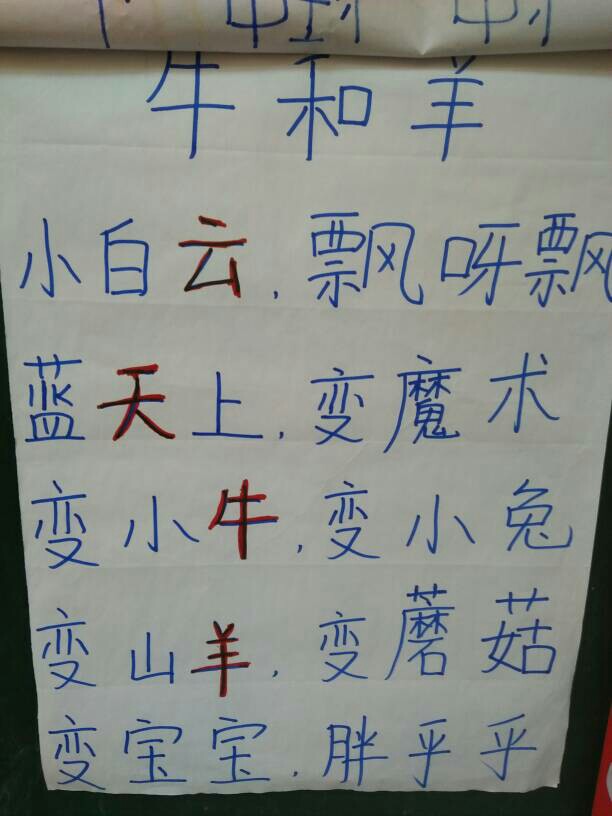 牛和羊
小白云,飘呀飘
蓝天上,变魔术
变小牛,变小兔
变山羊,变蘑菇
变宝宝,胖乎乎